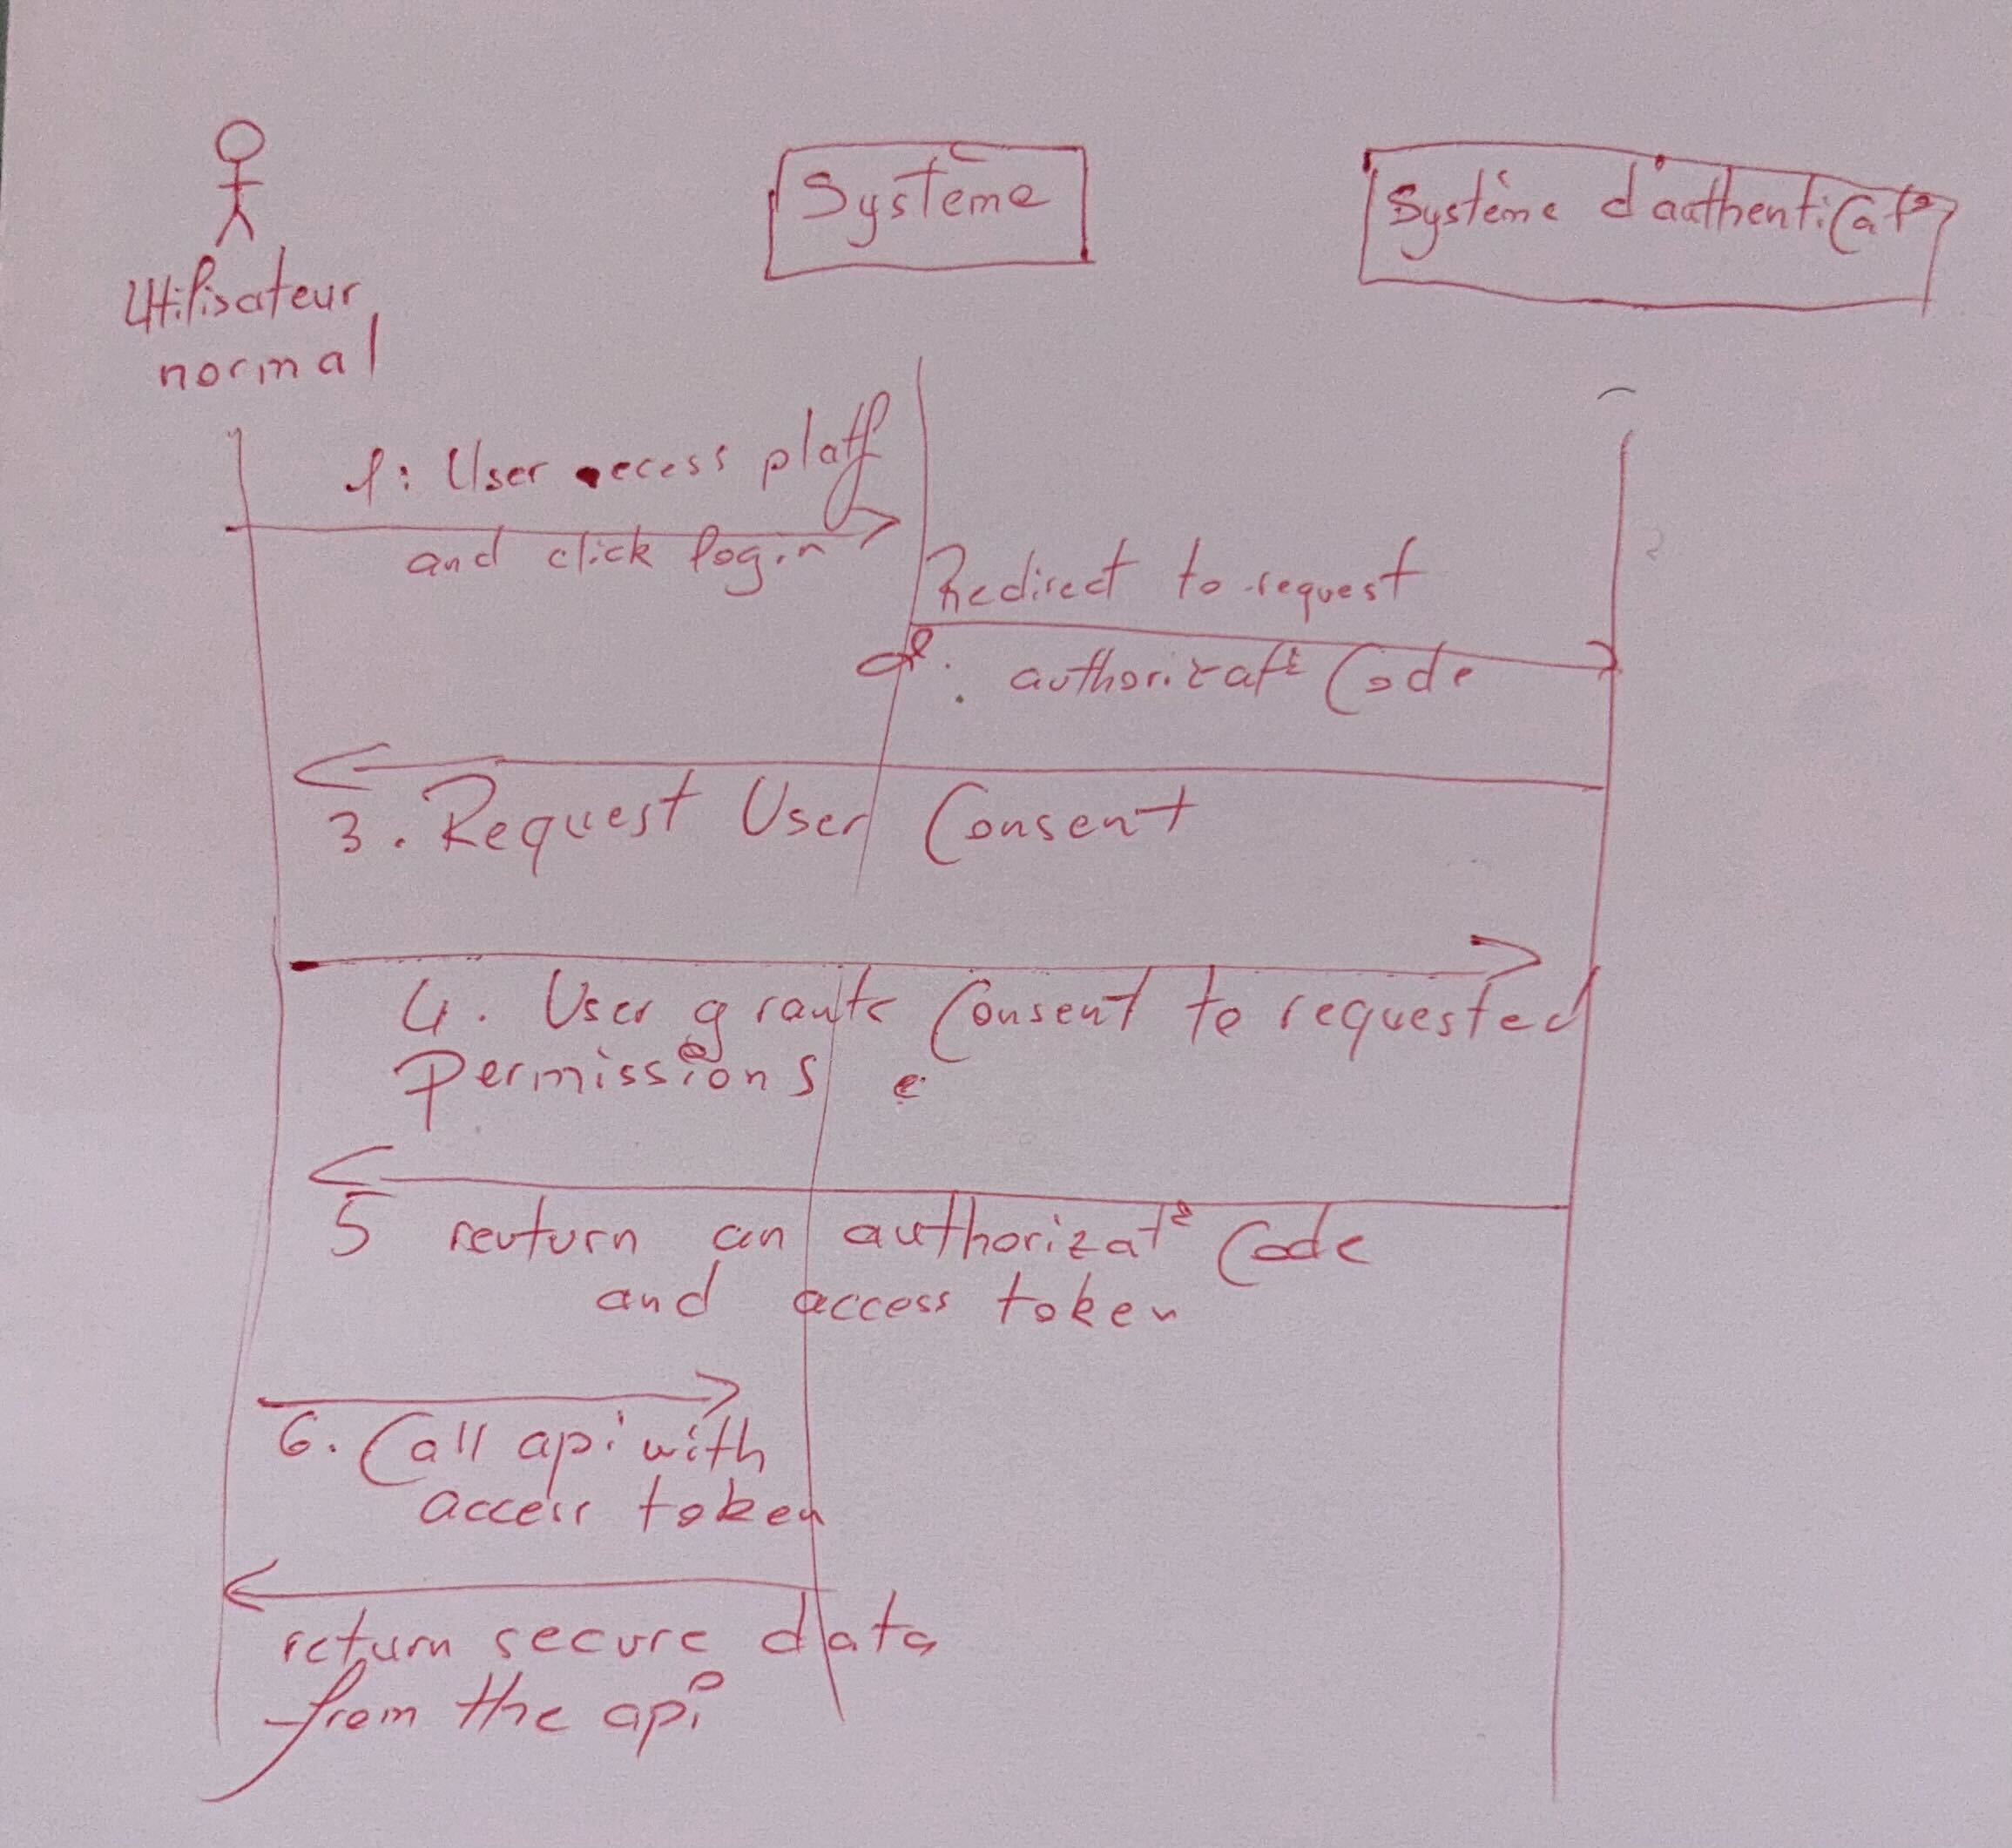 Système
Système d'authenticat°
Utilisateur
normal
1: User access platf
and click login
Redirect to request
2. authorizat° Code
3. Request User Consent
4. User grants Consent to requested
permissions
5 reuturn an authorizat° Code
and access token
6. Call api with
access token
return secure data
from the api